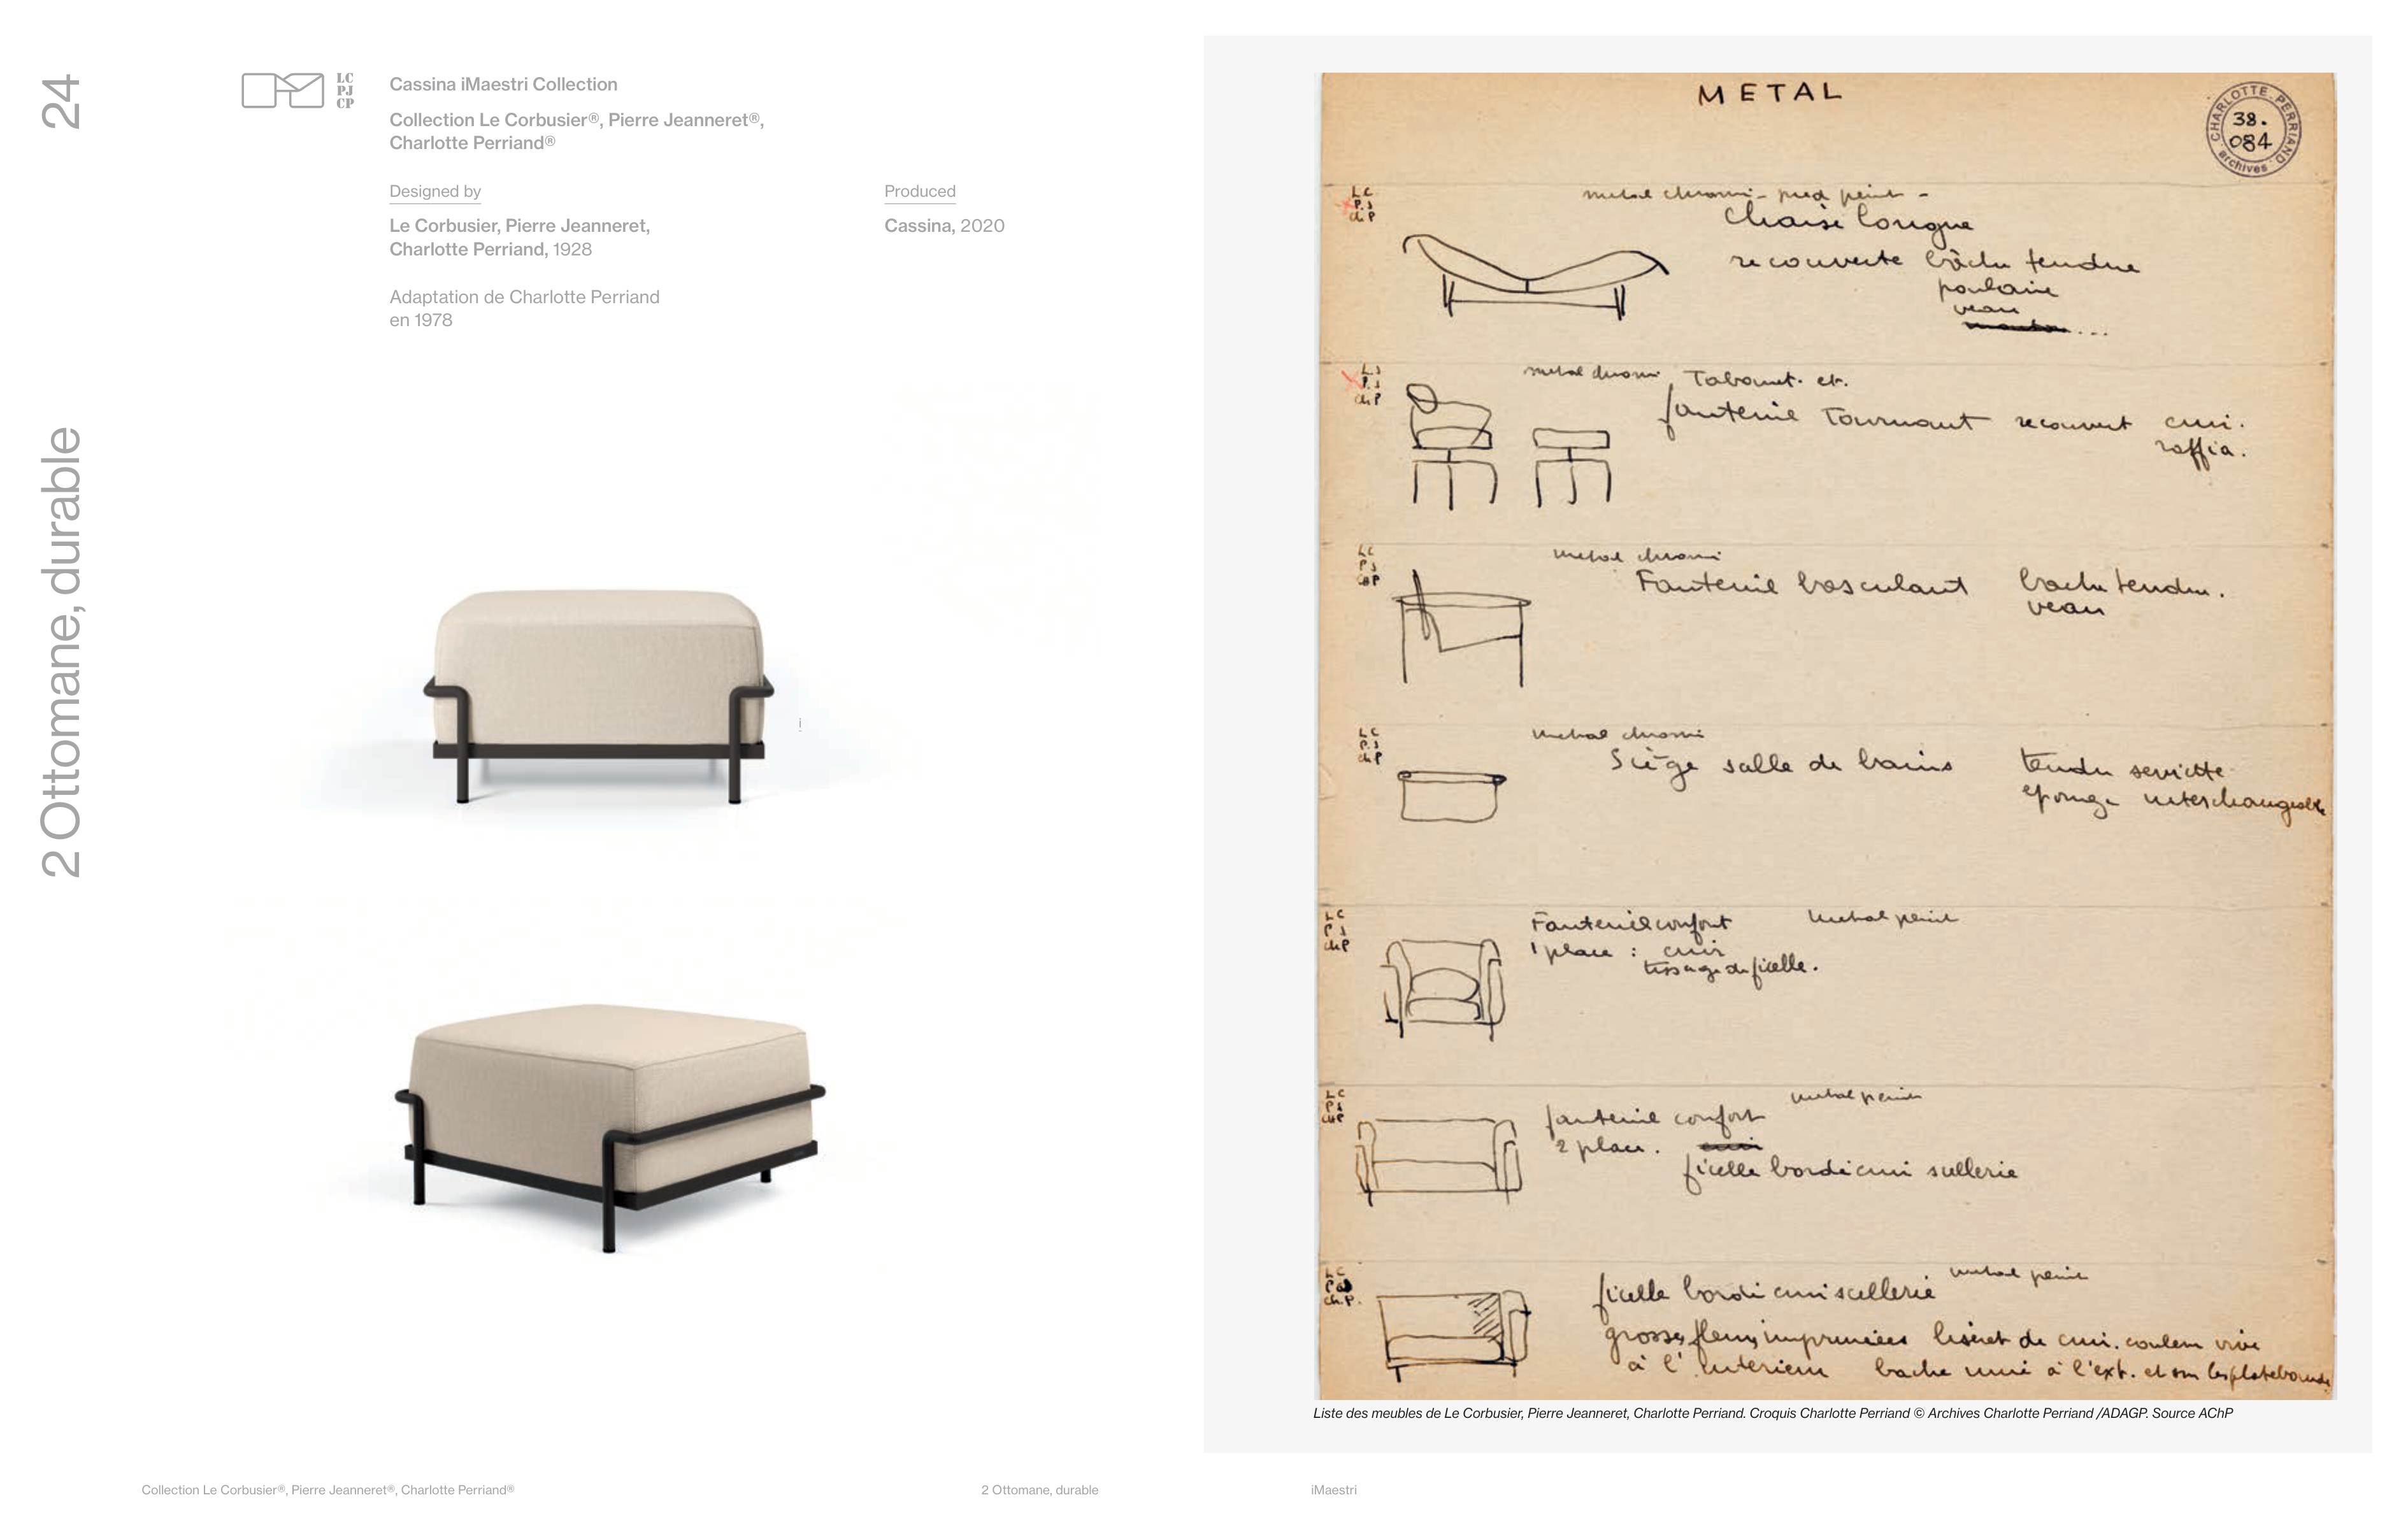 24
2 Ottomane, durable
LC
PJ
CP
Cassina iMaestri Collection
Collection Le Corbusier®, Pierre Jeanneret®,
Charlotte Perriand®
Designed by
Le Corbusier, Pierre Jeanneret,
Charlotte Perriand, 1928
Adaptation de Charlotte Perriand
en 1978
Produced
Cassina, 2020
i
METAL
CHARLOTTE PERRIAND
38.
084
archives
LC
P.J
ch P
metal chromé - pied peint -
chaise longue
recouverte bâche tendue
poulain
veau
...
metal chromé Tabouret. et.
fauteuil Tournant recouvert cuir.
raffia.
LC
PJ
ch P
metal chromé
Fauteuil basculant bache tendue.
veau
LC
P.J
ch P
metal chromé
Siège salle de bains tendu serviette
eponge interchangeable
LC
PJ
ch P
Fauteuil confort metal peint
1 place : cuir
tissage de ficelle.
LC
PJ
ch P
metal peint
fauteuil confort
2 place.
ficelle bordé cuir sellerie
LC
ch.P.
ficelle bordé cuir scellerie metal peint
grosses fleurs imprimées liseret de cuir. couleur vive
à l'interieur bache unie à l'ext. et sur les platebandes
Liste des meubles de Le Corbusier, Pierre Jeanneret, Charlotte Perriand. Croquis Charlotte Perriand © Archives Charlotte Perriand /ADAGP. Source AChP
Collection Le Corbusier®, Pierre Jeanneret®, Charlotte Perriand®
2 Ottomane, durable
iMaestri